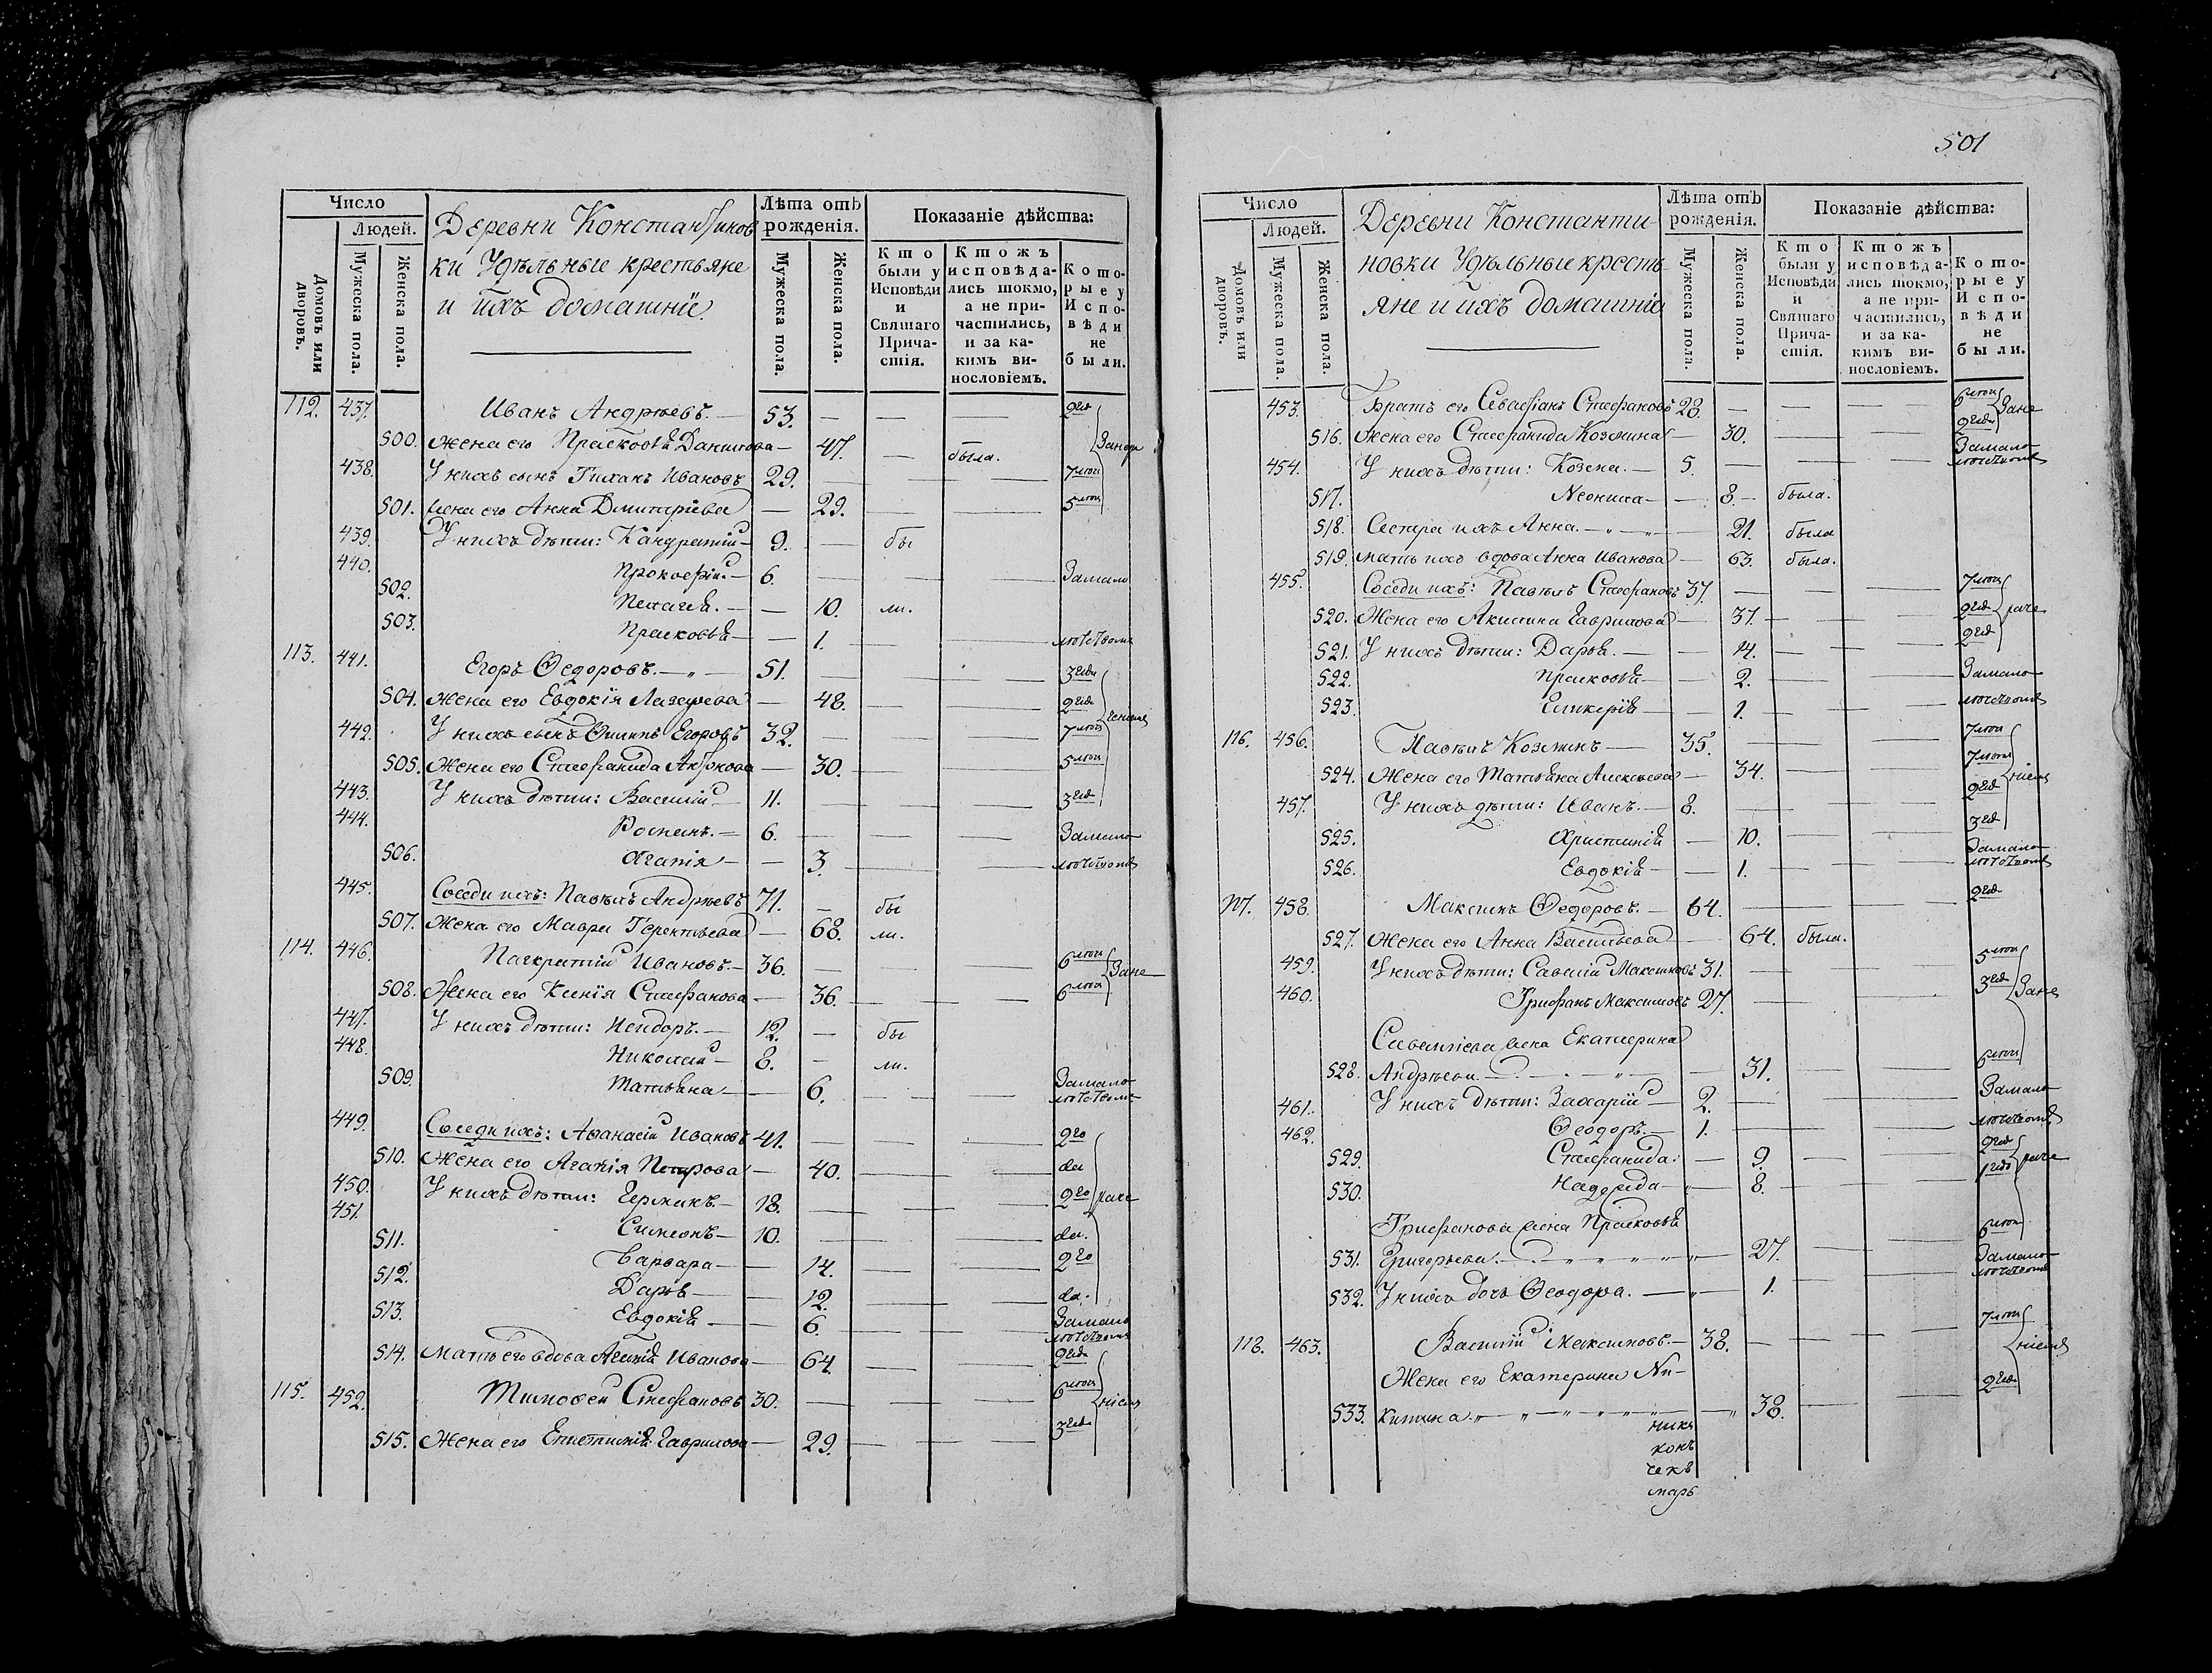 Число
Людей.
Домовъ или дворовъ.
Мужеска пола.
Женска пола.
Деревни Константинов
ки Удѣльные крестьяне
и ихъ домашніе.
Лѣта отъ рожденія.
Мужеска пола.
Женска пола.
Показаніе дѣйства:
Кто были у Исповѣди и Святаго Причастія.
Ктожъ исповѣдались токмо, а не причастились, и за какимъ винословіемъ.
Которые у Исповѣди не были.
112. 437. Иванъ Андрѣевъ. 53. — — — 2 год
500. Жена его Прасковья Данилова — 47. — была.
438. У нихъ сынъ Ивановъ 29. — — — 7 лѣтъ
501. жена его Анна Дмитріева — 29. — — 5 лѣтъ
439. У нихъ дѣти: Кандратій — 9. — бы
440. Прокофій — 6. — — — Замало
502. Пелагея. — — 10. ли.
503. Прасковья — — 1. — лѣтством
113. 441. Егоръ Ѳедоровъ. — 51. — — — 3 годы
504. Жена его Евдокія Лазарева — 48. — — 2 год
442. У нихъ сынъ Филипъ Егоровъ 32. — — — 7 лѣтъ
505. Жена его Стефанида — 30. — — 5 лѣтъ
443. У нихъ дѣти: Василій — 11. — — — 3 год
444. Романъ. — 6. — — — Замало
506. Агапія — — 3. — — лѣтством
445. Соседи ихъ: Павелъ Андрѣевъ 71. — бы
507. Жена его Мавра Терентьева — 68. ли.
114. 446. Панкратій Ивановъ. — 36. — 6 лѣтъ
508. Жена его Ксенія Стефанова — 36. — — 6 лѣтъ
447. У нихъ дѣти: Исидоръ. — 12. — бы
448. Николай — 8. — ли.
509. Татьяна — — 6. — — Замало лѣтством
449. Соседи ихъ: Аѳанасій Ивановъ 41. — — — 2 го
510. Жена его Агапія Петрова — 40. — — да
450. У нихъ дѣти: Германъ. — 18. — — — 2 го
451. Симеонъ — 10. — — — да.
511. Варвара — — 14. — — 2 го
512. Дарья — — 12. — — да.
513. Евдокія — — 6. — — Замало лѣтством
514. Мать его вдова Ивановa — 64. — — 2 год
115. 452. Тимоѳей Стефановъ 30. — — — 6 лѣтъ
515. Жена его Гаврилова — 29. — — 3 год
501
Число
Людей.
Домовъ или дворовъ.
Мужеска пола.
Женска пола.
Деревни Константи
новки Удѣльные кресть
яне и ихъ домашніе
Лѣта отъ рожденія.
Мужеска пола.
Женска пола.
Показаніе дѣйства:
Кто были у Исповѣди и Святаго Причастія.
Ктожъ исповѣдались токмо, а не причастились, и за какимъ винословіемъ.
Которые у Исповѣди не были.
453. Братъ его Севастіанъ Стефановъ 28. — — — 6 лѣтъ
516. Жена его Стефанида Козмина — 30. — — 2 года
454. У нихъ дѣти: Козма. — 5. — — — Замало лѣтством
517. Неонила — — 8 — была.
518. Сестра ихъ Анна. — 21. была
519. мать ихъ вдова Анна Иванова — 63. была.
455. Соседи ихъ: Павелъ Стефановъ 37. — — — 7 лѣтъ
520. Жена его Акилина Гаврилова — 37. — — 2 год
521. У нихъ дѣти: Дарья. — — 14. — — 2 год
522. Прасковья — — 2. — — Замало
523. Гликерія — — 1. — — лѣтством
116. 456. Павелъ Козминъ — 35. — — — 7 лѣтъ
524. Жена его Татьяна Алексѣева — 34. — — 7 лѣтъ
457. У нихъ дѣти: Иванъ. — 8. — — — 2 год
525. Христинія — 10. — — 3 год
526. Евдокія — — 1. — — Замало лѣтством
117. 458. Максимъ Ѳедоровъ. — 64. — — — 2 год
527. Жена его Анна Васильева — 64. была.
459. У нихъ дѣти: Савелій Максимовъ 31. — — — 5 лѣтъ
460. Трифанъ Максимовъ 27. — — — 3 год
Савелиева жена Екатерина
528. Андрѣева. — — 31. — — 6 лѣтъ
461. У нихъ дѣти: Захарій — 2. — — — Замало
462. Ѳеодоръ. — 1. — — — лѣтством
529. Стефанида. — 9. — — 2 год
530. Надежда — 8. — — 1 год
Трифанова жена Прасковья
531. Григорьева. — 27. — — 6 лѣтъ
532. У нихъ дочь Ѳеодора. — 1. — — Замало лѣтством
118. 463. Василій Максимовъ. — 38. — — — 7 лѣтъ
Жена его Екатерина Ни-
533. китина. — 38. — — 2 год